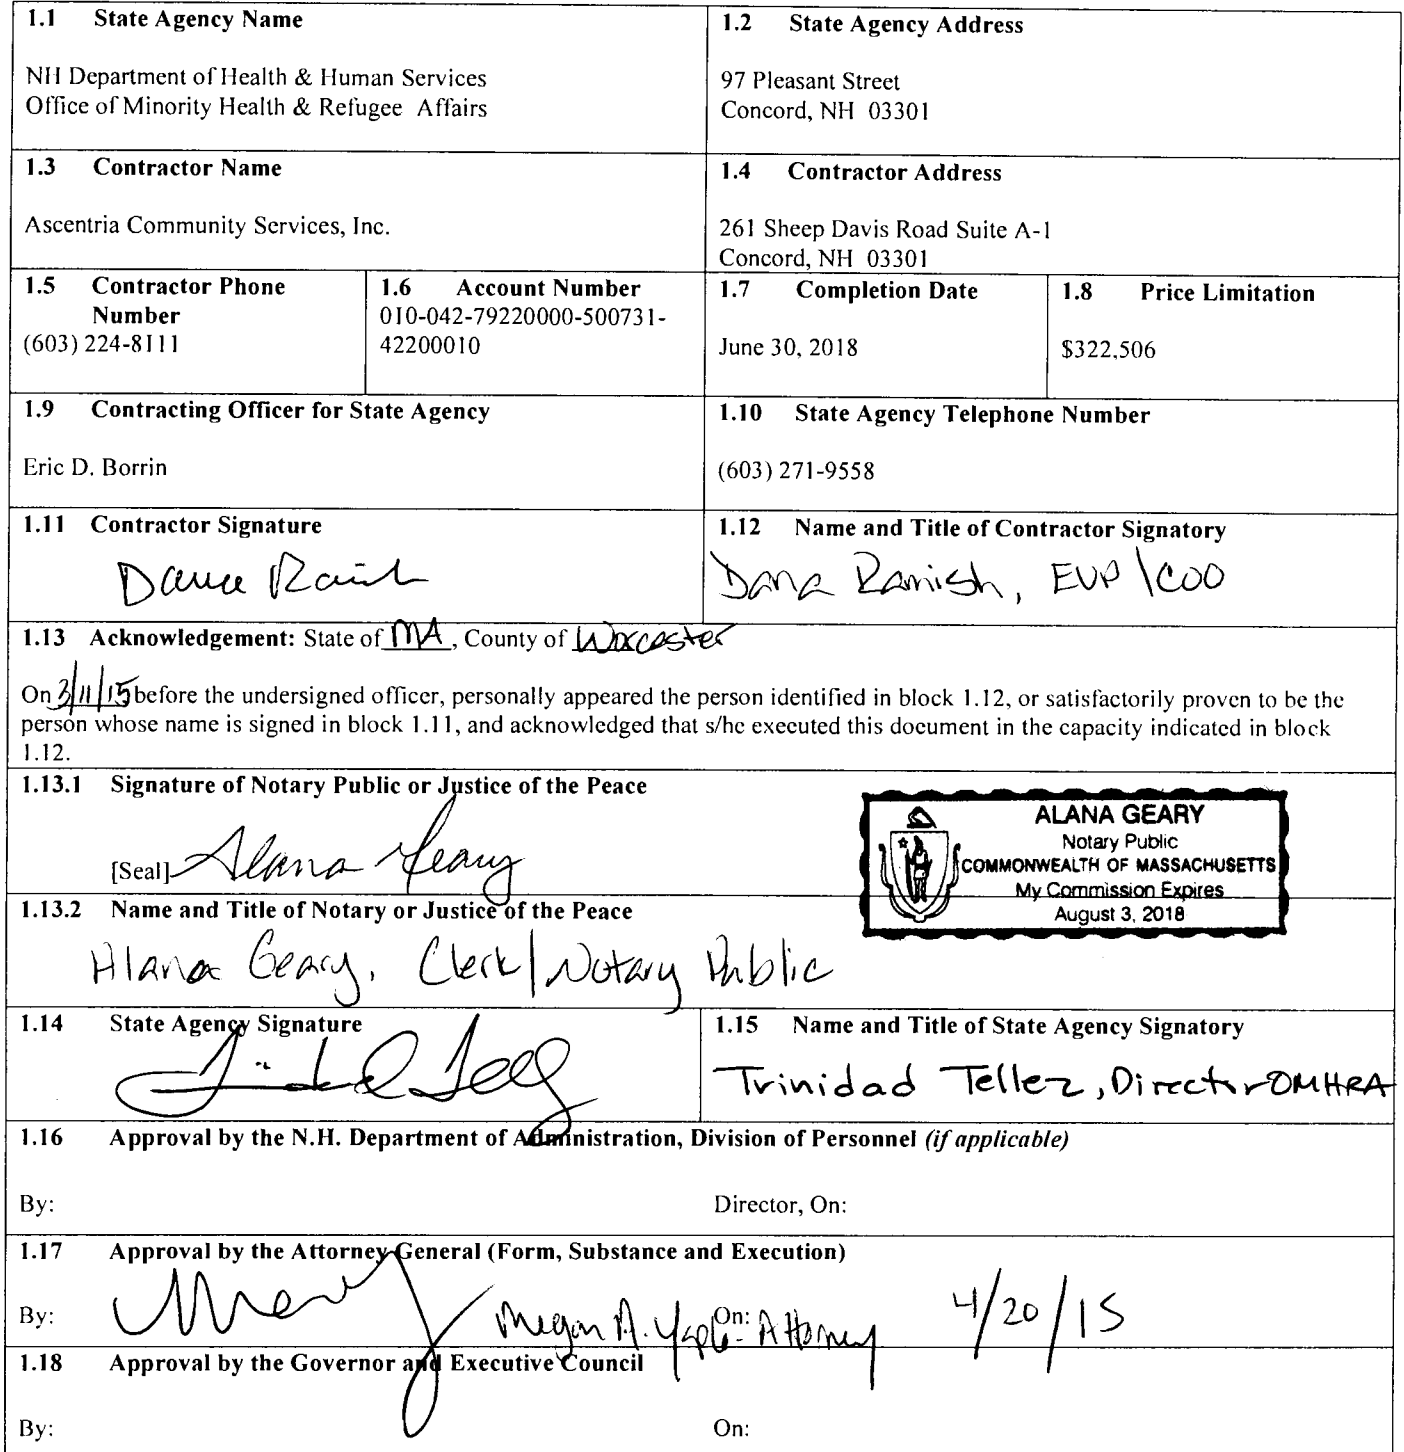 1.1 State Agency Name
NH Department of Health & Human Services
Office of Minority Health & Refugee Affairs
1.2 State Agency Address
97 Pleasant Street
Concord, NH 03301
1.3 Contractor Name
Ascentria Community Services, Inc.
1.4 Contractor Address
261 Sheep Davis Road Suite A-1
Concord, NH 03301
1.5 Contractor Phone
Number
(603) 224-8111
1.6 Account Number
010-042-79220000-500731-
42200010
1.7 Completion Date
June 30, 2018
1.8 Price Limitation
$322,506
1.9 Contracting Officer for State Agency
Eric D. Borrin
1.10 State Agency Telephone Number
(603) 271-9558
1.11 Contractor Signature
1.12 Name and Title of Contractor Signatory
Dana Ramish, EVP\COO
1.13 Acknowledgement: State of MA, County of Worcester
On 3/11/15 before the undersigned officer, personally appeared the person identified in block 1.12, or satisfactorily proven to be the
person whose name is signed in block 1.11, and acknowledged that s/he executed this document in the capacity indicated in block
1.12.
1.13.1 Signature of Notary Public or Justice of the Peace
[Seal] Alana Geary
ALANA GEARY
Notary Public
COMMONWEALTH OF MASSACHUSETTS
My Commission Expires
August 3, 2018
1.13.2 Name and Title of Notary or Justice of the Peace
Alana Geary, Clerk/Notary Public
1.14 State Agency Signature
1.15 Name and Title of State Agency Signatory
Trinidad Tellez, Director OMHRA
1.16 Approval by the N.H. Department of Administration, Division of Personnel (if applicable)
By: Director, On:
1.17 Approval by the Attorney General (Form, Substance and Execution)
By: Megan A. Yaple - Attorney On: 4/20/15
1.18 Approval by the Governor and Executive Council
By: On: